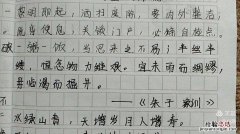 黎明即起，洒扫庭除，要内外整洁，
既昏便息，关锁门户，必亲自检点。
一粥一饭，当思来之不易；半丝半
缕，恒念物力维艰。宜未雨而绸缪，
毋临渴而掘井。
——《朱子家训》
天增岁月人增寿。
检查网